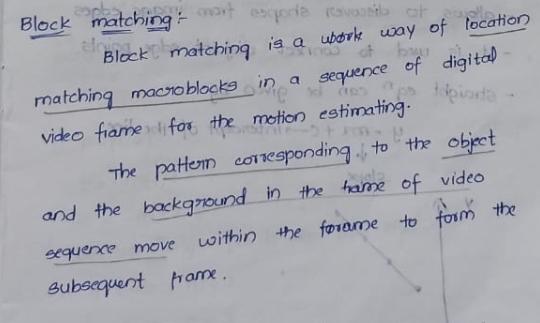 Block matching :-
Block matching is a work way of location
matching macroblocks in a sequence of digital
video frame for the motion estimating.
The pattern corresponding to the object
and the background in the frame of video
sequence move within the forame to form the
subsequent frame.